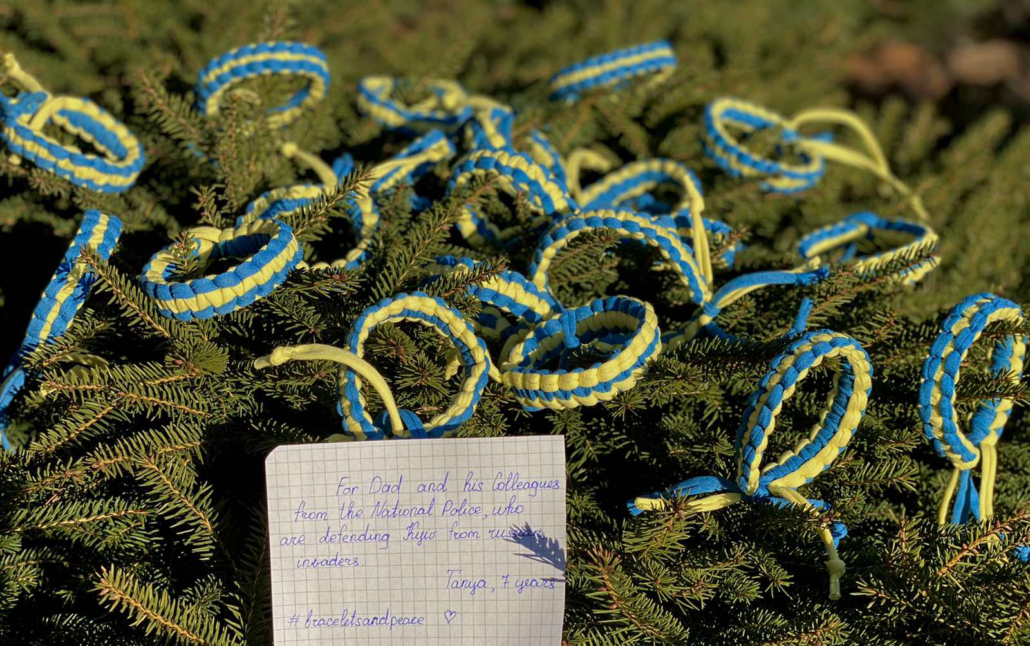 For Dad and his Colleagues
from the National Police, who
are defending Kyiv from russian
invaders.
Tanya, 7 years
#braceletsandpeace ♡